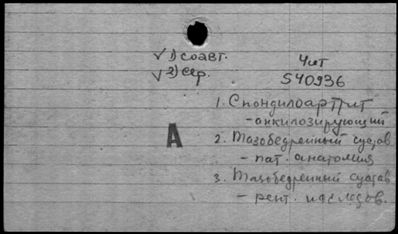 √ 1) соавт.
√ 2) сер.
Чит
540936
1. Спондилоартрит
- анкилозирующий
А
2. Тазобедренный сустав
- пат. анатомия
3. Тазобедренный сустав
- рент. исследов.